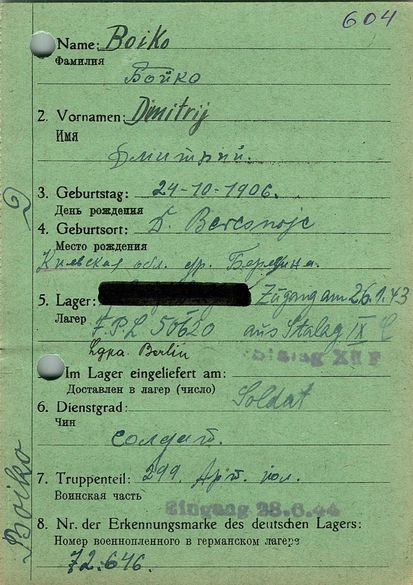 604
Name: Boiko
Фамилия
Бойко
2. Vornamen: Dmitrij
Имя
Дмитрий.
3. Geburtstag: 24-10-1906.
День рождения
4. Geburtsort: D.
Место рождения
Киевская обл.
5. Lager: Zugang am 26.1.43
Лагерь
F.P.L 50620 aus Stalag IX C
Berlin
Stalag XII F
Im Lager eingeliefert am:
Доставлен в лагер (число)
6. Dienstgrad: Soldat
Чин
солдат.
7. Truppenteil: 299. Арт. пол.
Воинская часть
Eingang 28.6.44
8. Nr. der Erkennungsmarke des deutschen Lagers:
Номер военнопленного в германском лагере
72.646.
Boiko